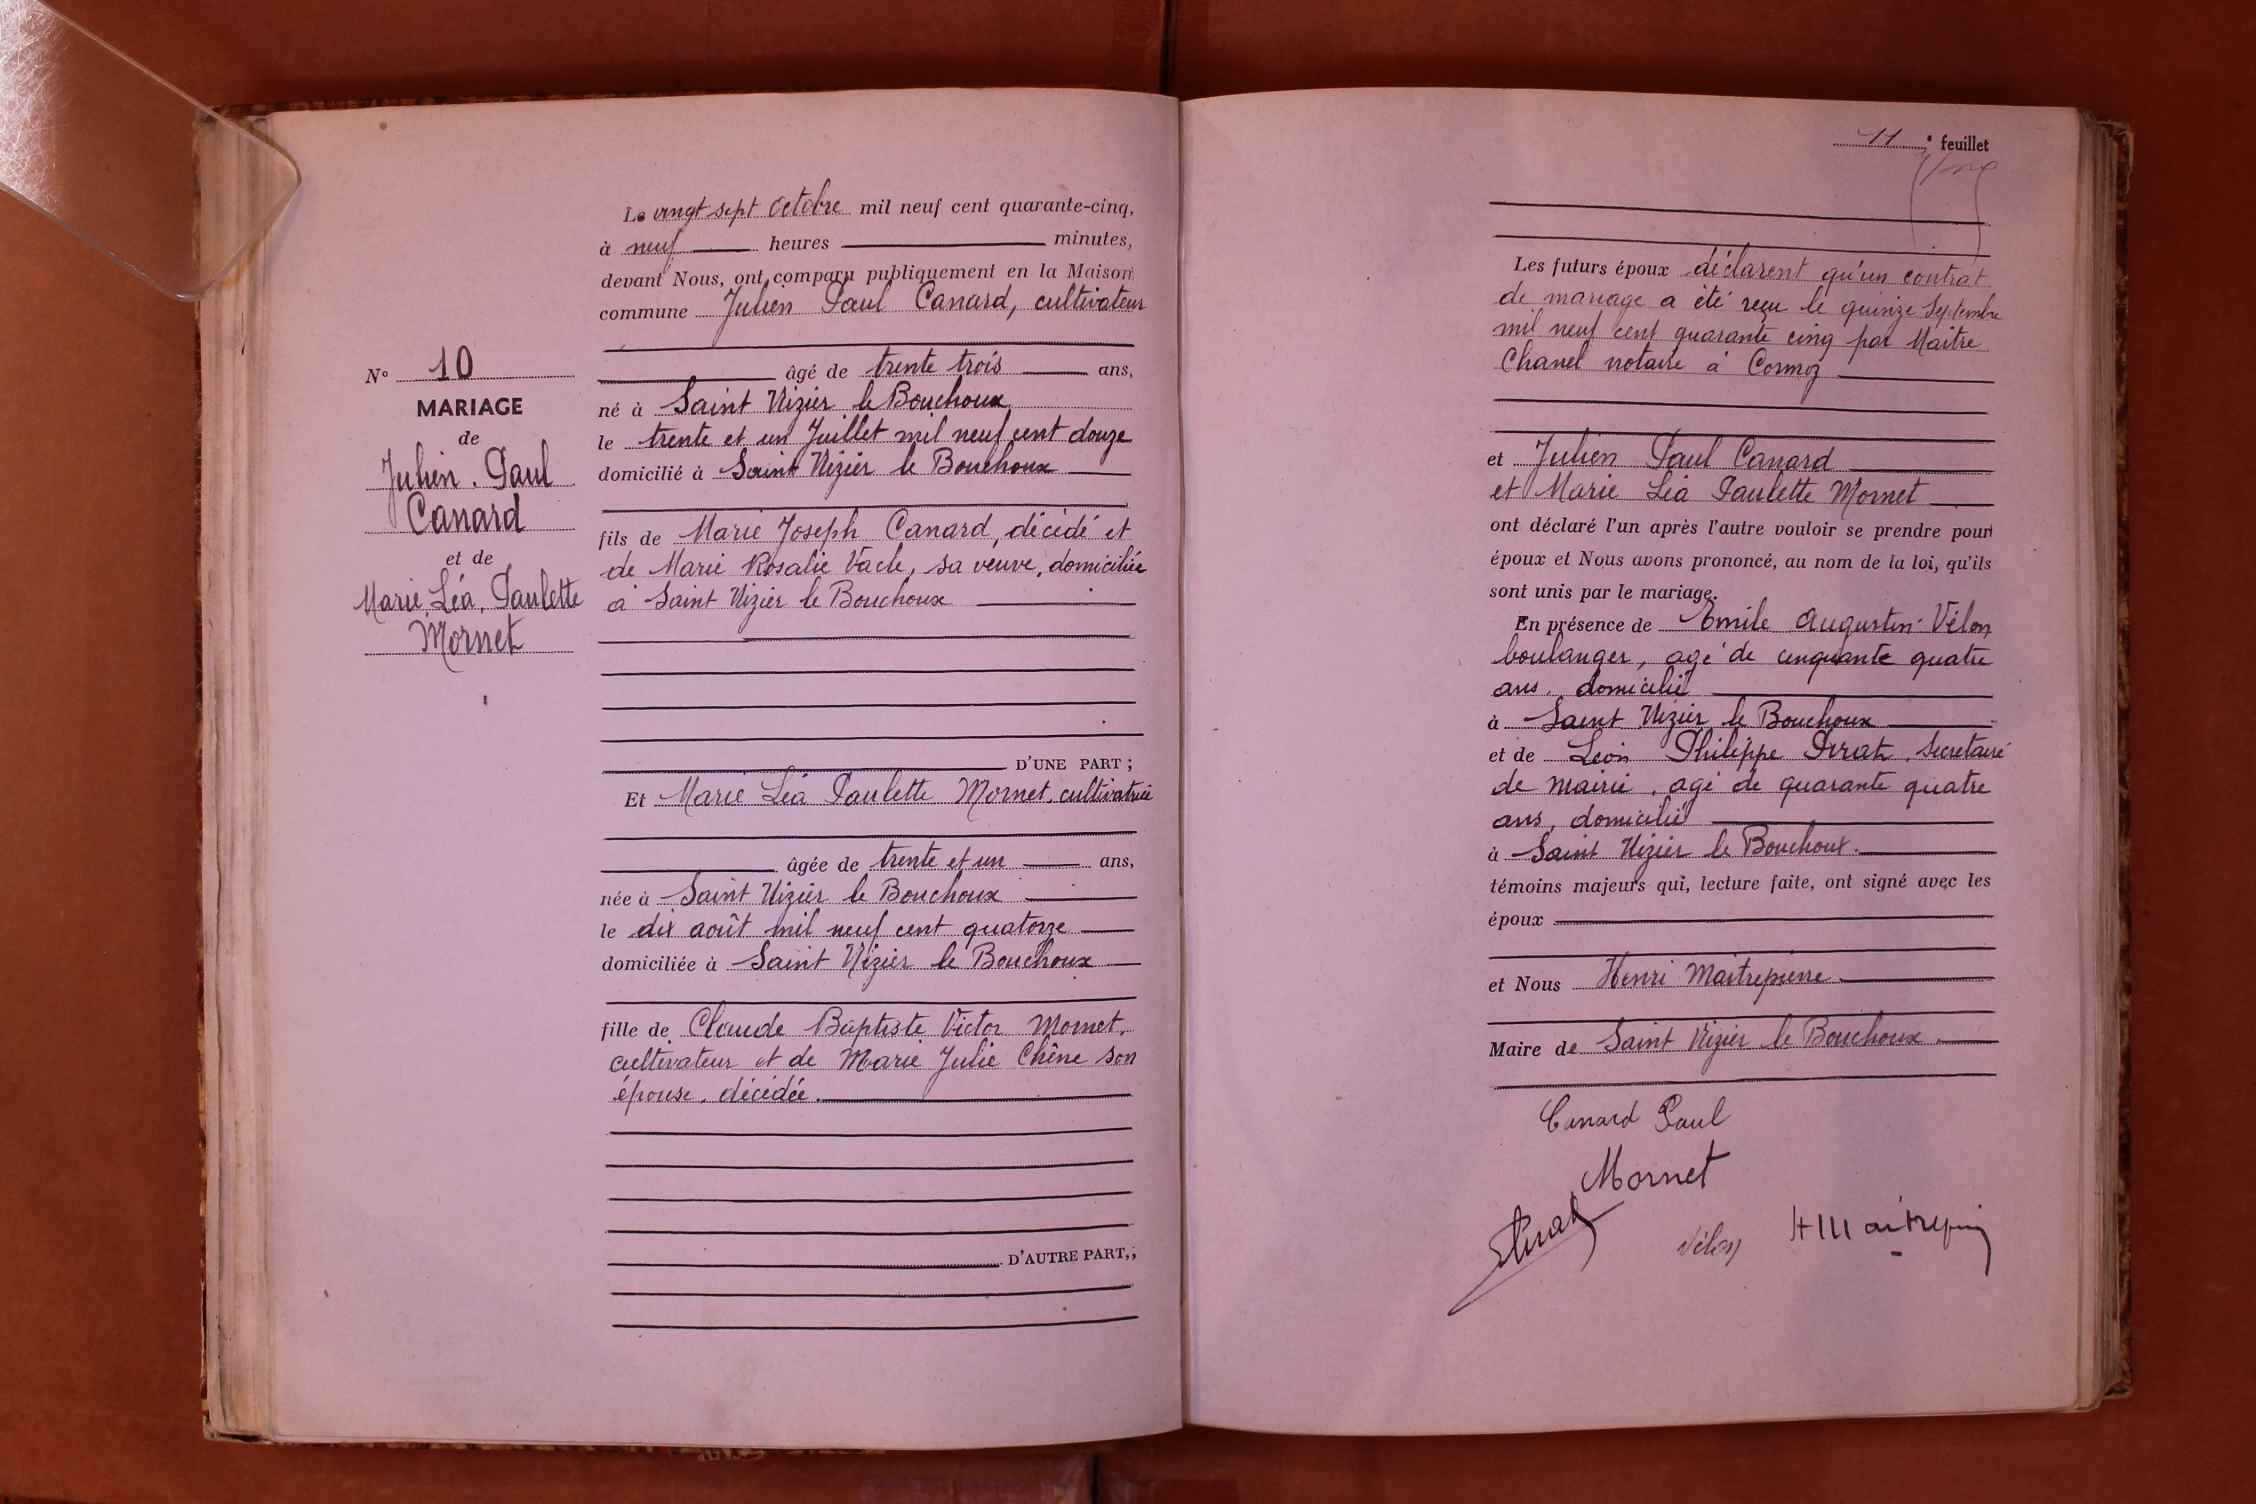 N° 10
MARIAGE
de
Julien. Paul
Canard
et de
Marie, Léa, Paulette
Mornet
Le vingt sept octobre mil neuf cent quarante-cinq,
à neuf heures minutes,
devant Nous, ont comparu publiquement en la Maison
commune Julien Paul Canard, cultivateur
âgé de trente trois ans,
né à Saint Nizier le Bouchoux
le trente et un Juillet mil neuf cent douze
domicilié à Saint Nizier le Bouchoux
fils de Marie Joseph Canard, décédé et
de Marie Rosalie Vacle, sa veuve, domiciliée
à Saint Nizier le Bouchoux
D'UNE PART ;
Et Marie Léa Paulette Mornet, cultivatrice
âgée de trente et un ans,
née à Saint Nizier le Bouchoux
le dix août mil neuf cent quatorze
domiciliée à Saint Nizier le Bouchoux
fille de Claude Baptiste Victor Mornet,
cultivateur et de Marie Julie Chêne son
épouse, décédée.
D'AUTRE PART,;
11e feuillet
Les futurs époux déclarent qu'un contrat
de mariage a été reçu le quinze Septembre
mil neuf cent quarante cinq par Maitre
Chanel notaire à Cormoz
et Julien Paul Canard
et Marie Léa Paulette Mornet
ont déclaré l'un après l'autre vouloir se prendre pour
époux et Nous avons prononcé, au nom de la loi, qu'ils
sont unis par le mariage.
En présence de Emile Augustin Vélon
boulanger, agé de cinquante quatre
ans, domicilié
à Saint Nizier le Bouchoux
et de Léon Philippe Perrat, secretaire
de mairie, agé de quarante quatre
ans, domicilié
à Saint Nizier le Bouchoux.
témoins majeurs qui, lecture faite, ont signé avec les
époux
et Nous Henri Maitrepierre
Maire de Saint Nizier le Bouchoux.
Canard Paul
Mornet
Vélon